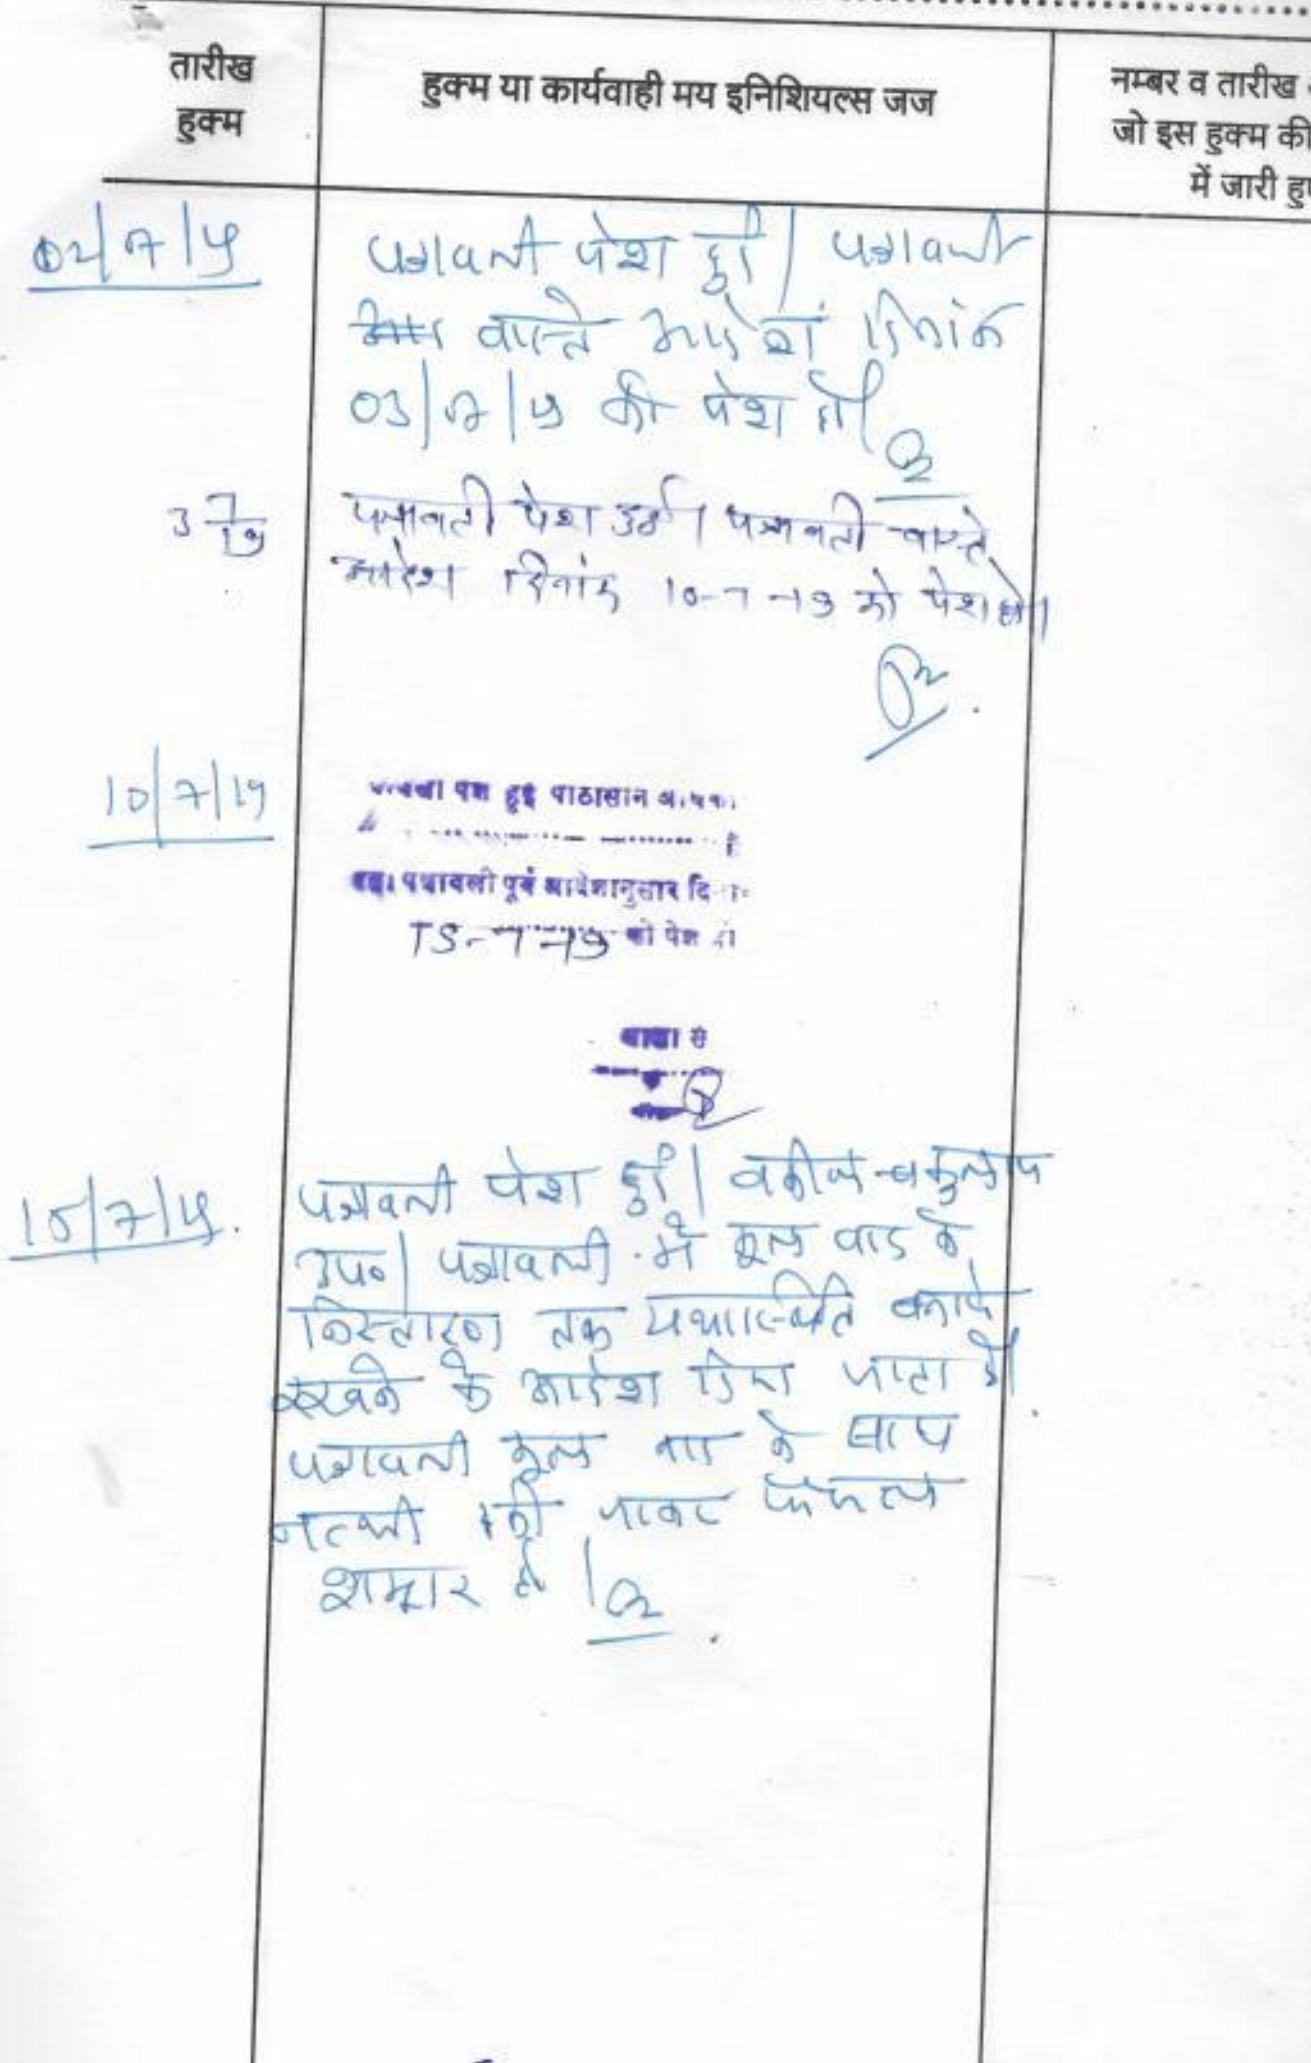 तारीख
हुक्म
हुक्म या कार्यवाही मय इनिशियल्स जज
नम्बर व तारीख
जो इस हुक्म की
में जारी
02/7/19
पत्रावली पेश हुई। पत्रावली
वास्ते आदेश दिनांक
03/7/19 को पेश हो।
3 7/19
पत्रावली पेश हुई। पत्रावली वास्ते
आदेश दिनांक 10-7-19 को पेश हो।
10/7/19
पत्रावली पेश हुई पीठासीन
पत्रावली पूर्व आदेशानुसार
15-7-19 को पेश हो
आज्ञा से
15/7/19.
पत्रावली पेश हुई। वकील
उप०। पत्रावली में मूल वाद के
निस्तारण तक यथास्थिति बनाये
रखने के आदेश दिए जाता है।
पत्रावली मूल वाद के साथ
नत्थी की जाकर फैसल
शुमार हो।